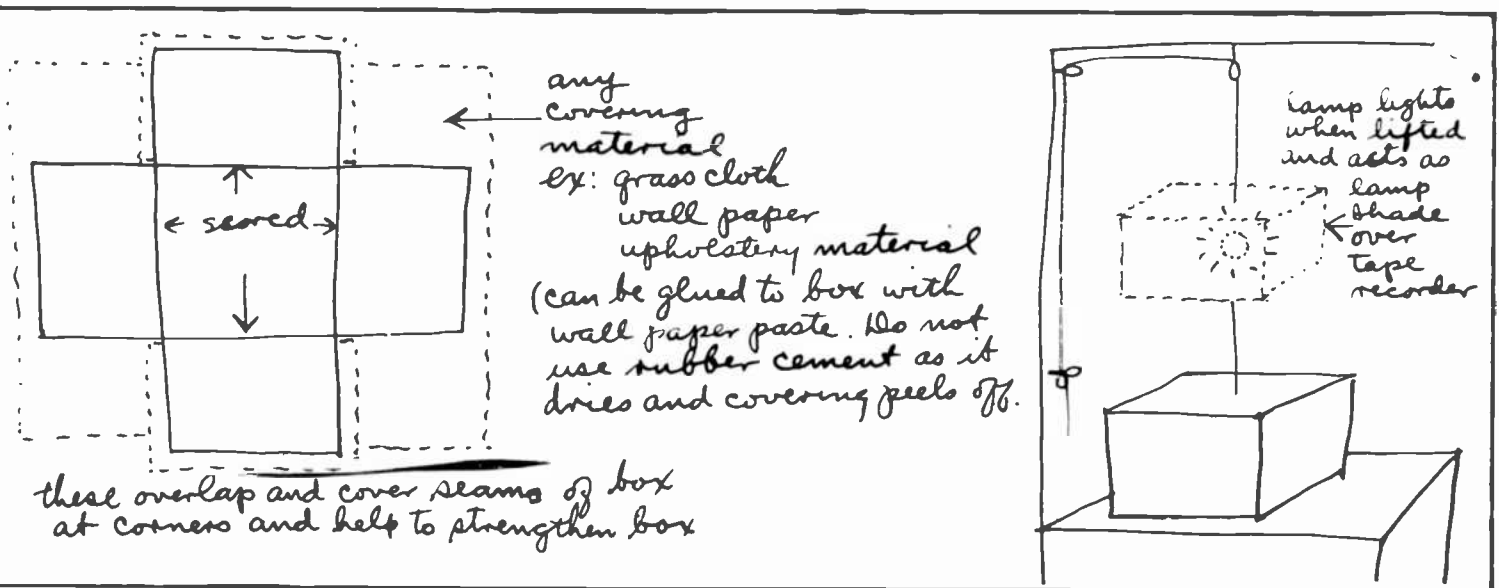 any
covering
material
ex: grass cloth
wall paper
upholstery material
(can be glued to box with
wall paper paste. Do not
use rubber cement as it
dries and covering peels off.
scored
these overlap and cover seams of box
at corners and help to strengthen box
lamp lights
when lifted
and acts as
lamp
shade
over
tape
recorder